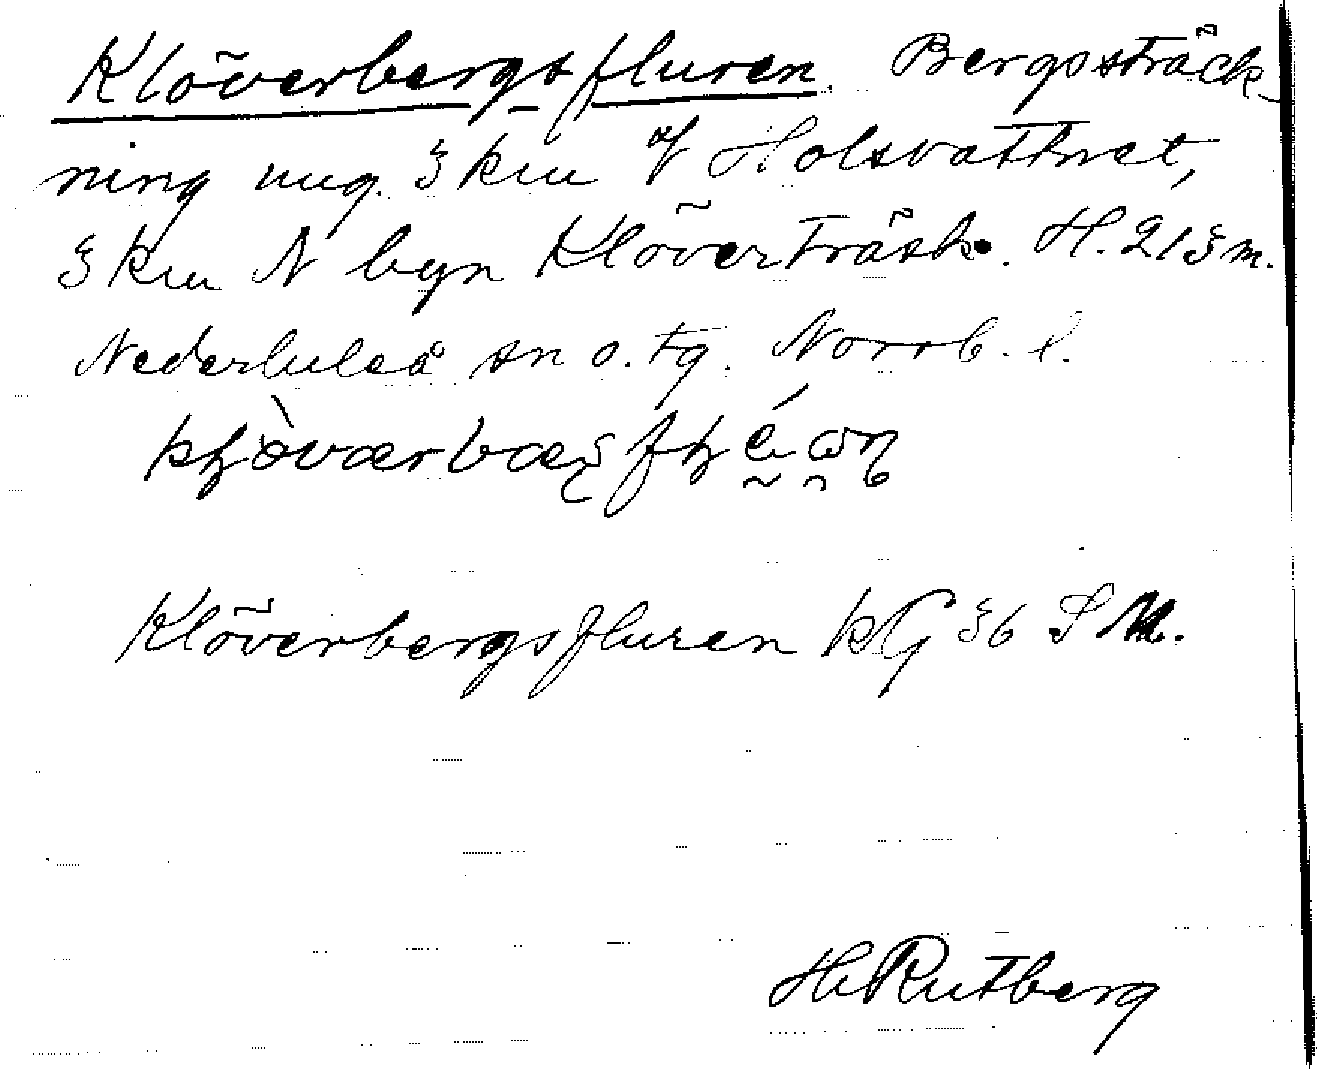 Klöverbergsfluren. Bergsträck-
ning ung. 3 km V Holsvattnet,
3 km N byn Klöverträsk. H. 213 m.
Nederluleå sn o. tg. Norrb. l.
Klöverbergsfluren kG 36 S M.
H. Rutberg